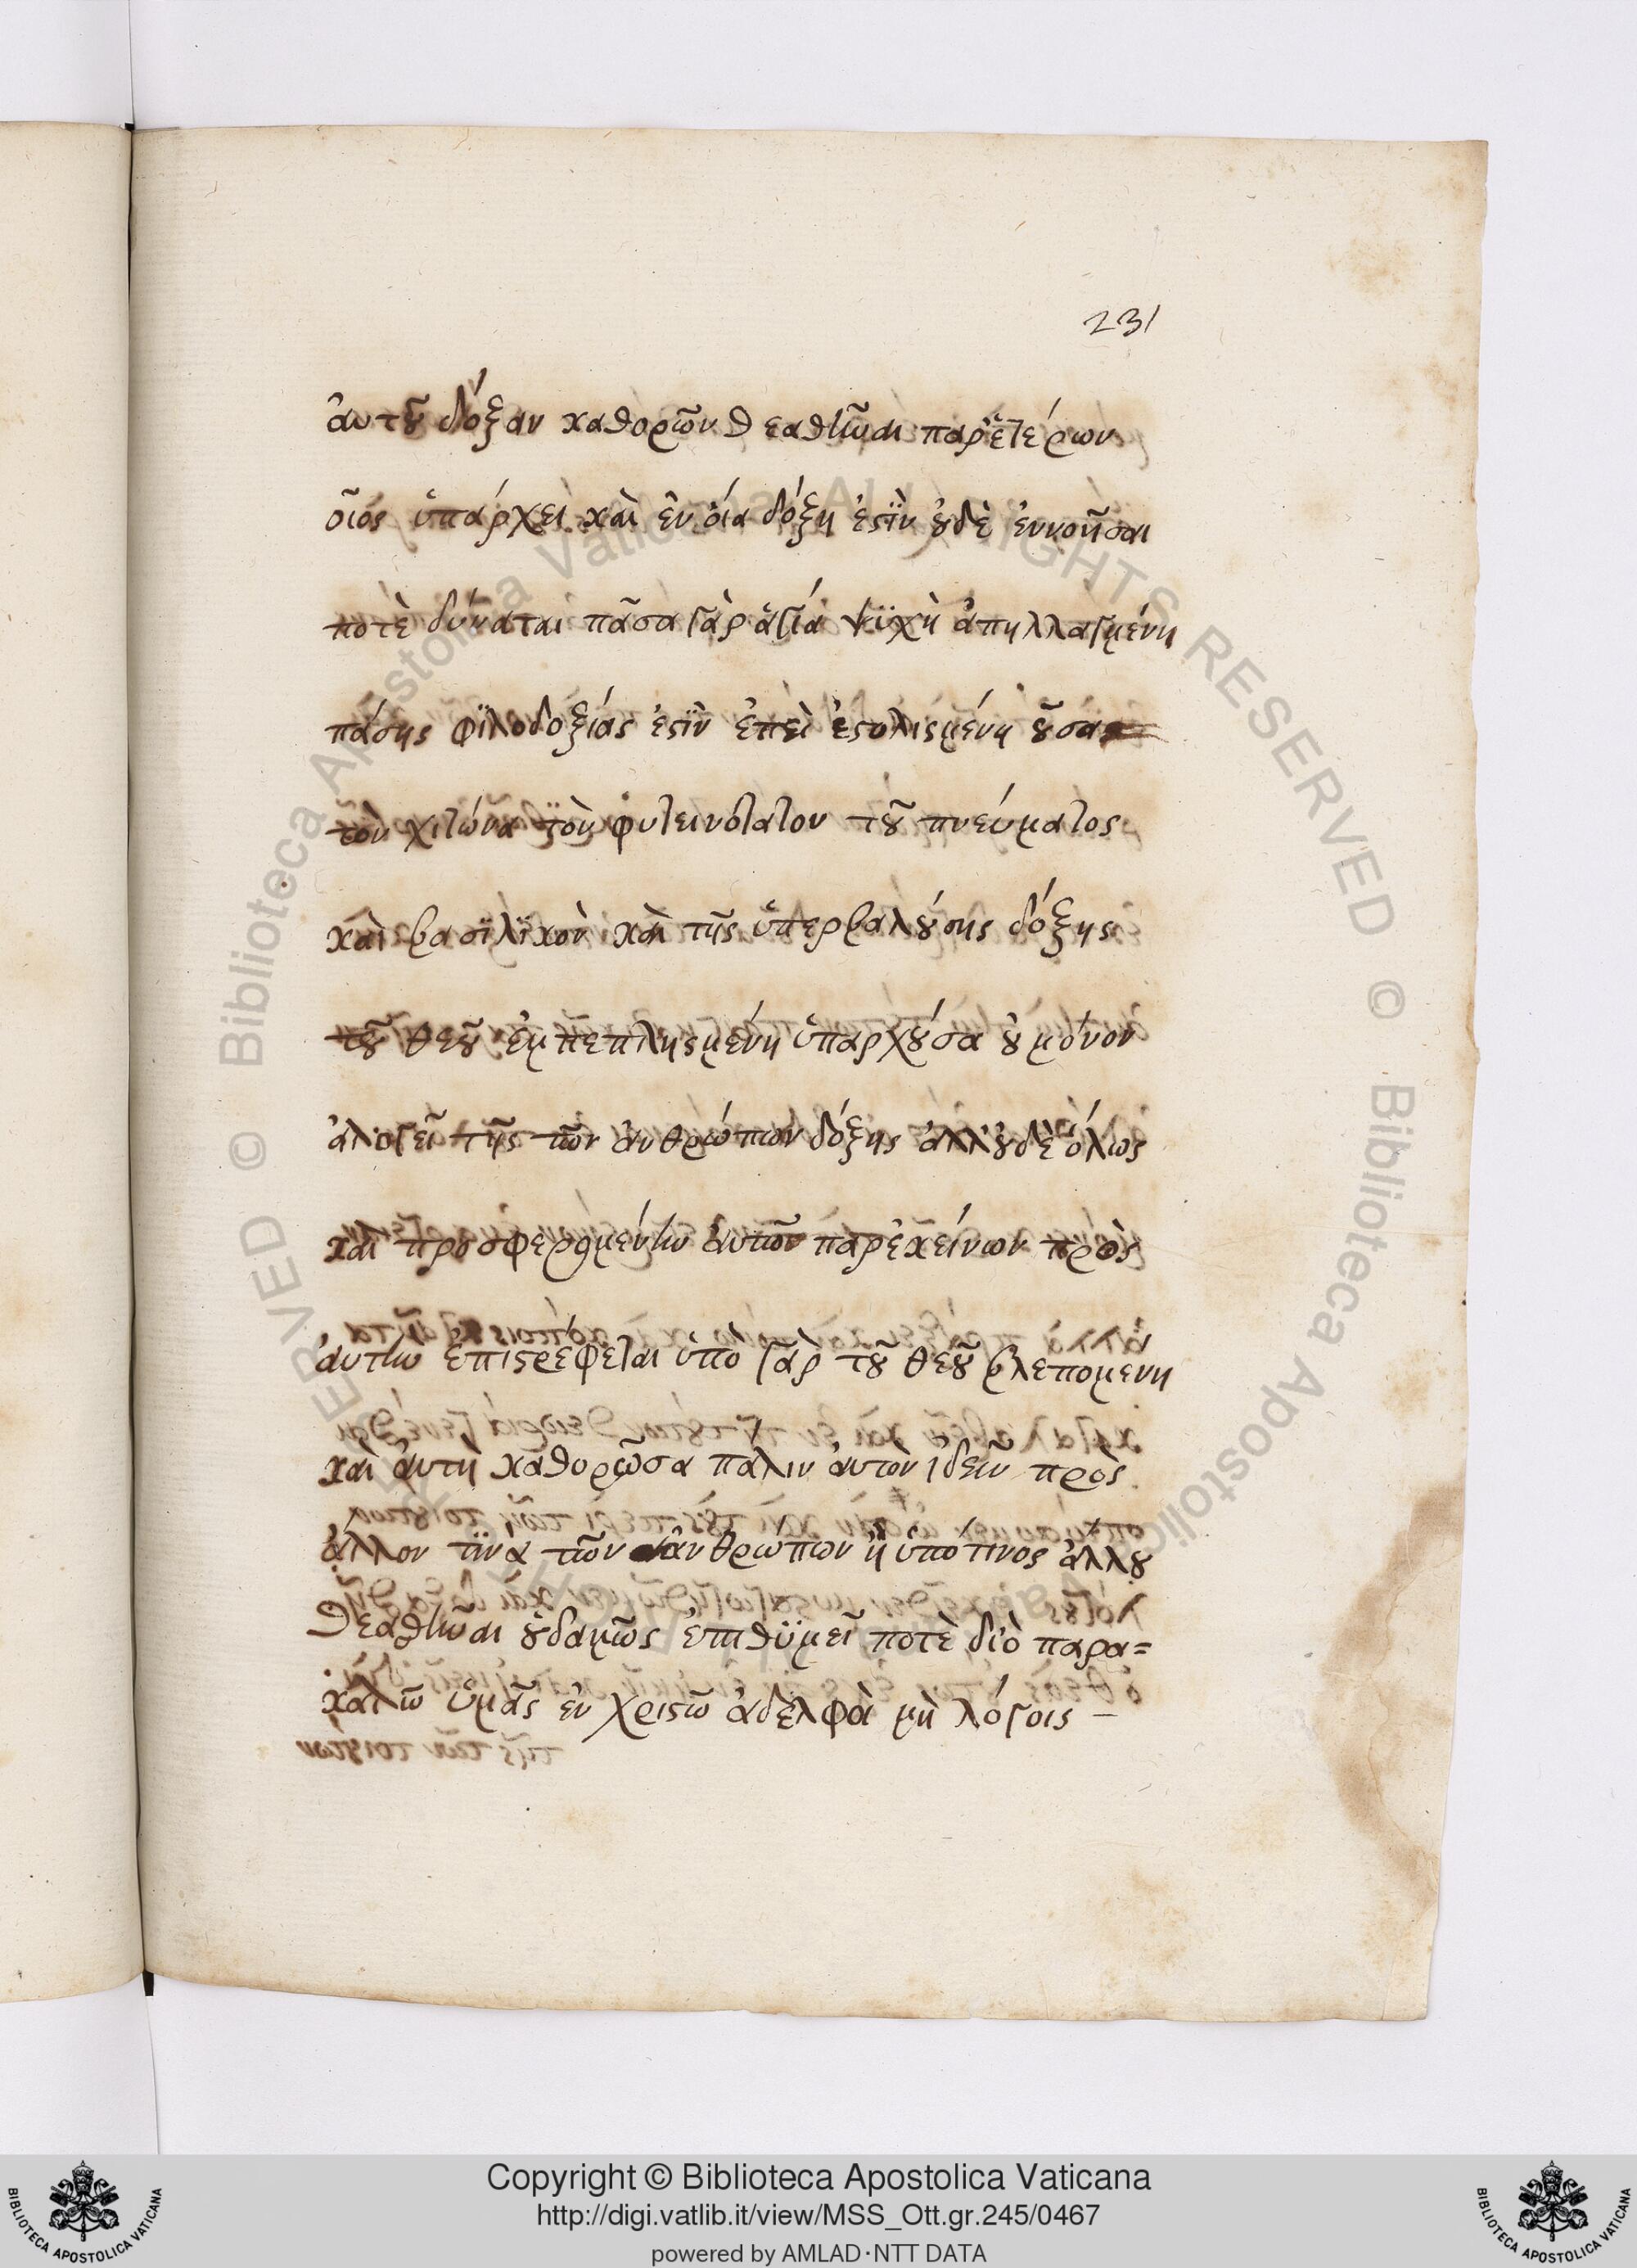 231
ἀυτοῦ δόξαν καθορῶν θεαθῆναι παρ' ἑτέρων
οἷός ὑπάρχει καὶ ἐν ὁία δόξη ἐστὶν οὐδὲ ἐννοῆσαι
ποτὲ δύναται πᾶσα γὰρ ἁγία ψϋχὴ ἀπηλλαγμένη
πάσης φϊλοδοξίας ἐστὶν ἐπεὶ ἐστολισμένη οὖσα
τὸν χιτῶνα τὸν φωτεινότατον τοῦ πνεύματος
καὶ βασϊλϊκὸν καὶ τῆς ὑπερβαλούσης δόξης
τοῦ θεοῦ ἐμπεπλησμένη ὑπαρχούσα οὐ μόνον
ἀλογεῖ τῆς τῶν ἀνθρώπων δόξης ἀλλ' οὐδὲ ὅλως
καὶ προσφερομένην ἀυτῶν παρ' ἐκείνων πρὸς
ἀυτὴν ἐπιστρέφεται ὑπὸ γὰρ τοῦ θεοῦ βλεπομενη
καὶ ἀυτὴ καθορῶσα πάλιν ἀυτὸν ἰδεῖν πρὸς
ἄλλον τϊνα τῶν ἀνθρώπων ἢ ὑπό τινος ἄλλου
θεαθῆναι οὐδαμῶς ἐπιθϋμεῖ ποτὲ διὸ παρα=
καλῶ ὑμᾶς ἐν χριστῶ ἀδελφὰ μὴ λόγοις –
Copyright © Biblioteca Apostolica Vaticana
http://digi.vatlib.it/view/MSS_Ott.gr.245/0467
powered by AMLAD·NTT DATA
BIBLIOTECA APOSTOLICA VATICANA
BIBLIOTECA APOSTOLICA VATICANA